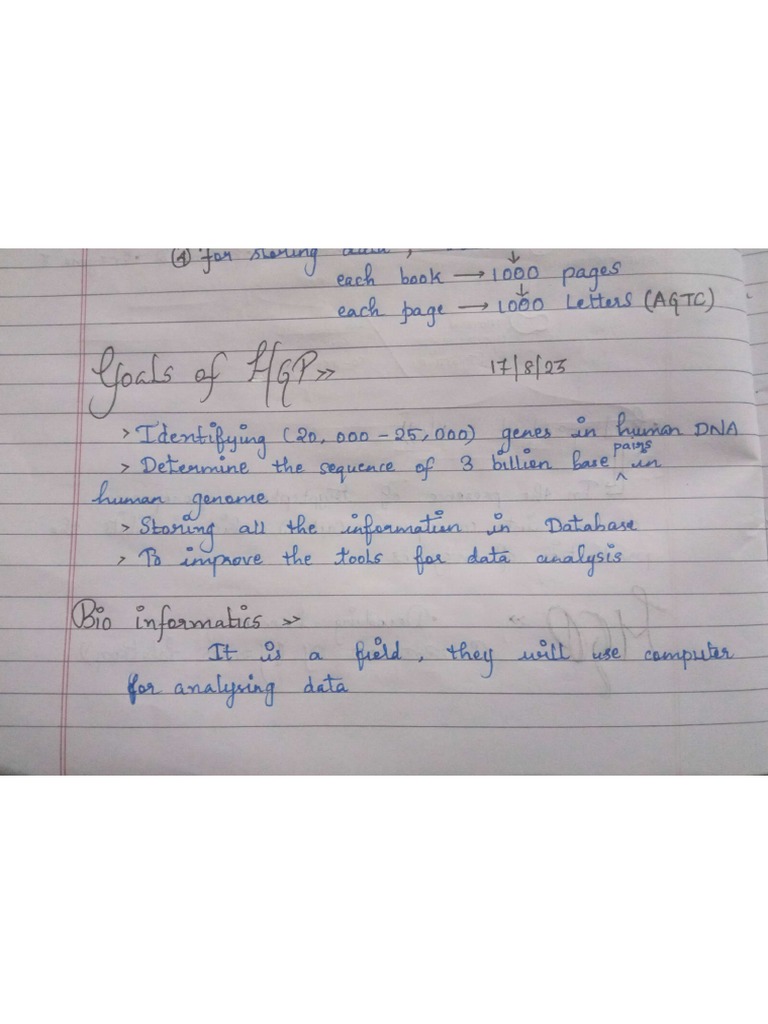 ④ for storing data ,
↓
each book → 1000 pages
↓
each page → 1000 Letters (AGTC)
Goals of HGP >>
17/8/23
> Identifying (20,000 - 25,000) genes in human DNA
> Determine the sequence of 3 billion base pairs in
human genome
> Storing all the information in Database
> To improve the tools for data analysis
Bio informatics >>
It is a field, they will use computer
for analysing data